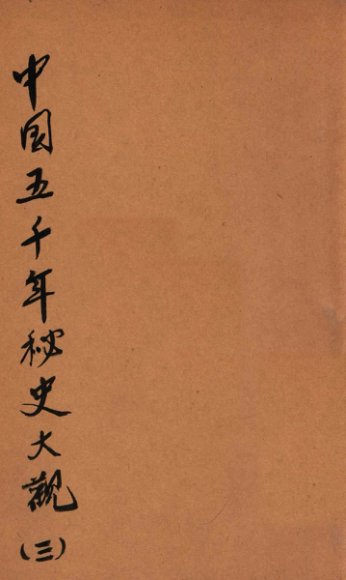 中国五千年秘史大觀(三)